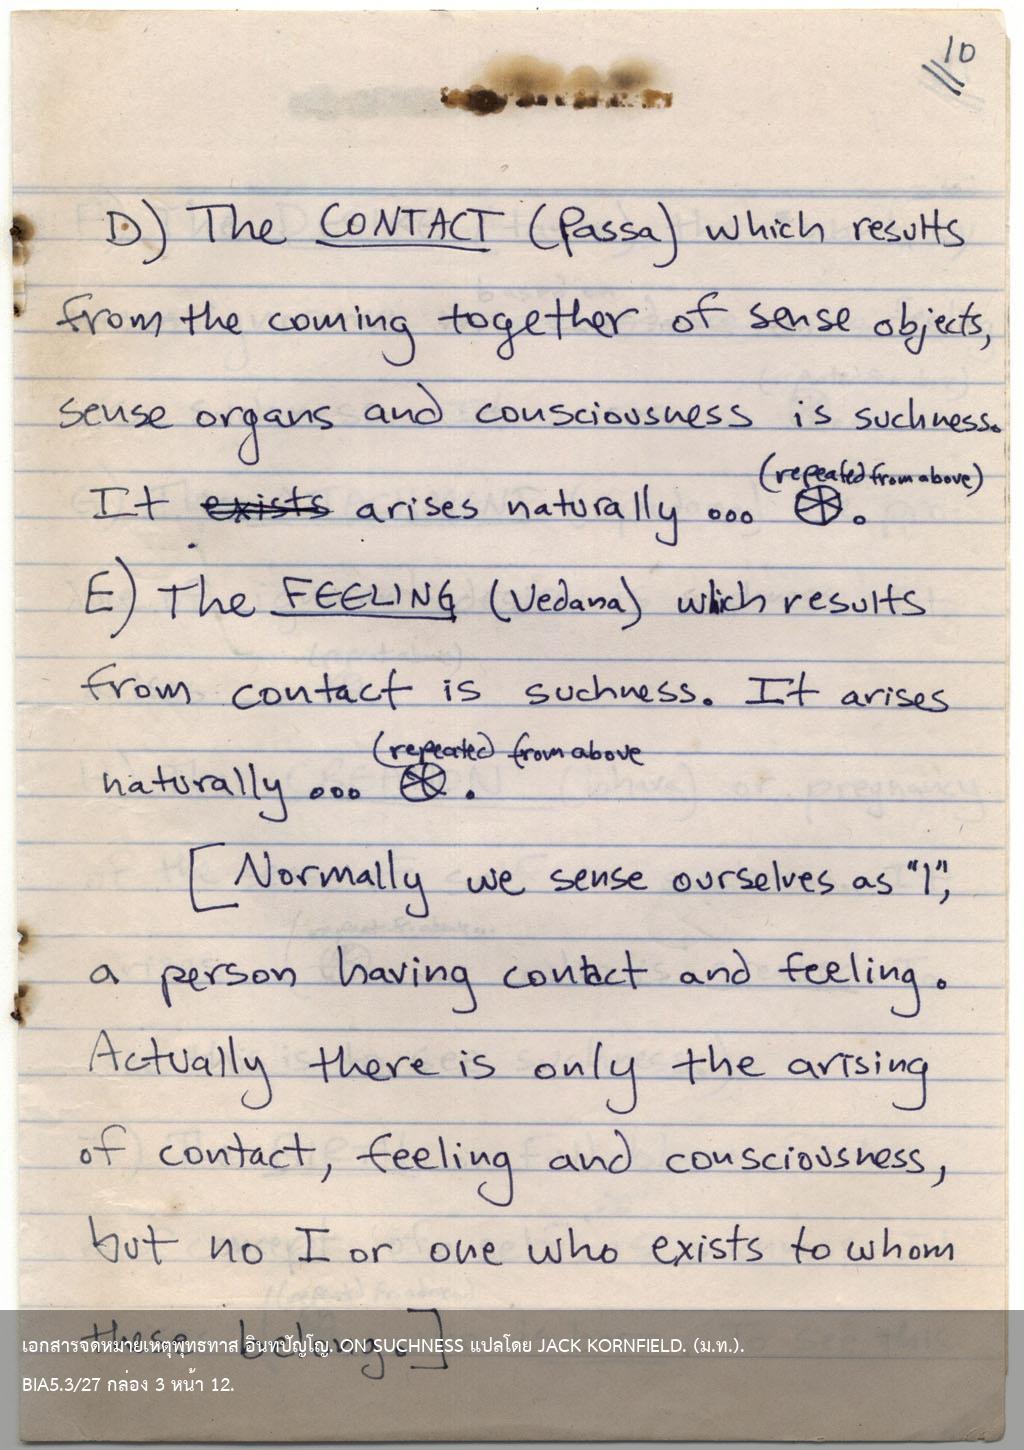 10
D) The CONTACT (Passa) which results
from the coming together of sense objects,
sense organs and consciousness is suchness.
(repeated from above)
It exists arises naturally ... .
E) The FEELING (Vedana) which results
from contact is suchness. It arises
(repeated) from above
naturally ... .
[Normally we sense ourselves as "I",
a person having contact and feeling.
Actually there is only the arising
of contact, feeling and consciousness,
but no I or one who exists to whom
these belong.]
เอกสารจดหมายเหตุพุทธทาส อินทปัญโญ. ON SUCHNESS แปลโดย JACK KORNFIELD. (ม.ท.).
BIA5.3/27 กล่อง 3 หน้า 12.